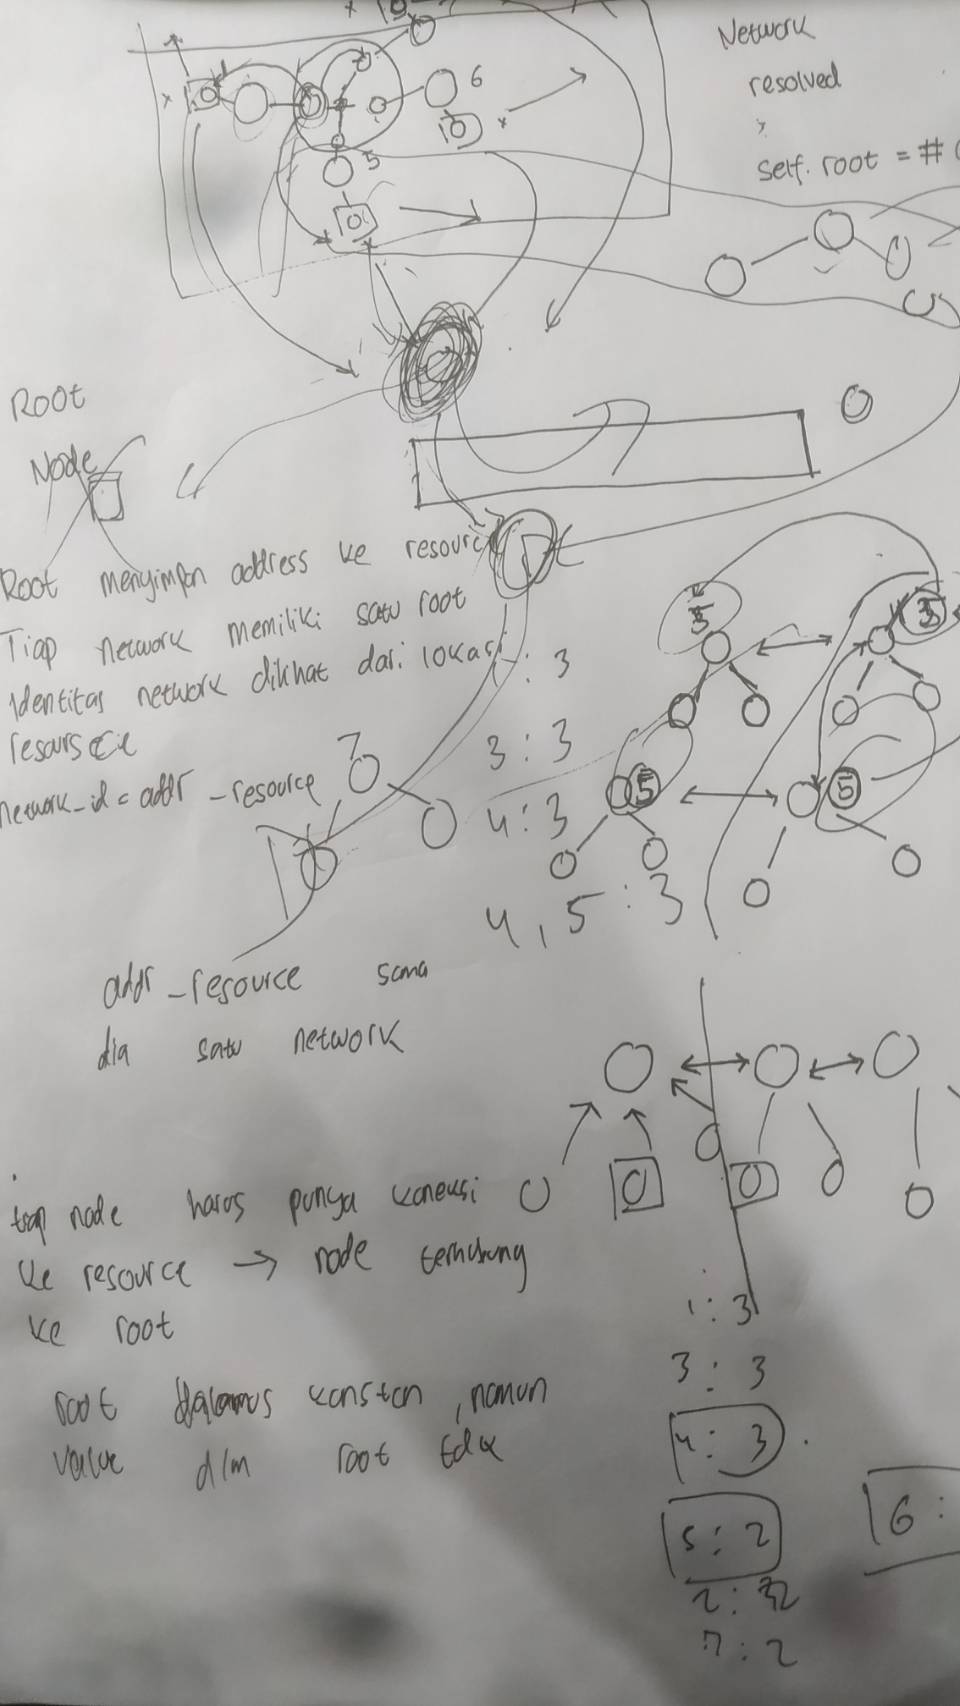 Network
resolved
self. root = #
6
5
Root
Node
Root menyimpan address ke resource
Tiap network memiliki satu root
Identitas network dilihat dari lokasi
network_id = addr_resource
: 3
3 : 3
4 : 3
4, 5 : 3
3
3
5
5
addr_resource sama
dia satu network
tiap node harus punya koneksi
ke resource → node terhubung
ke root
1 : 3
3 : 3
4 : 3
5 : 2
7 : 2
6 :
root harus konstan, namun
value dlm root tdk